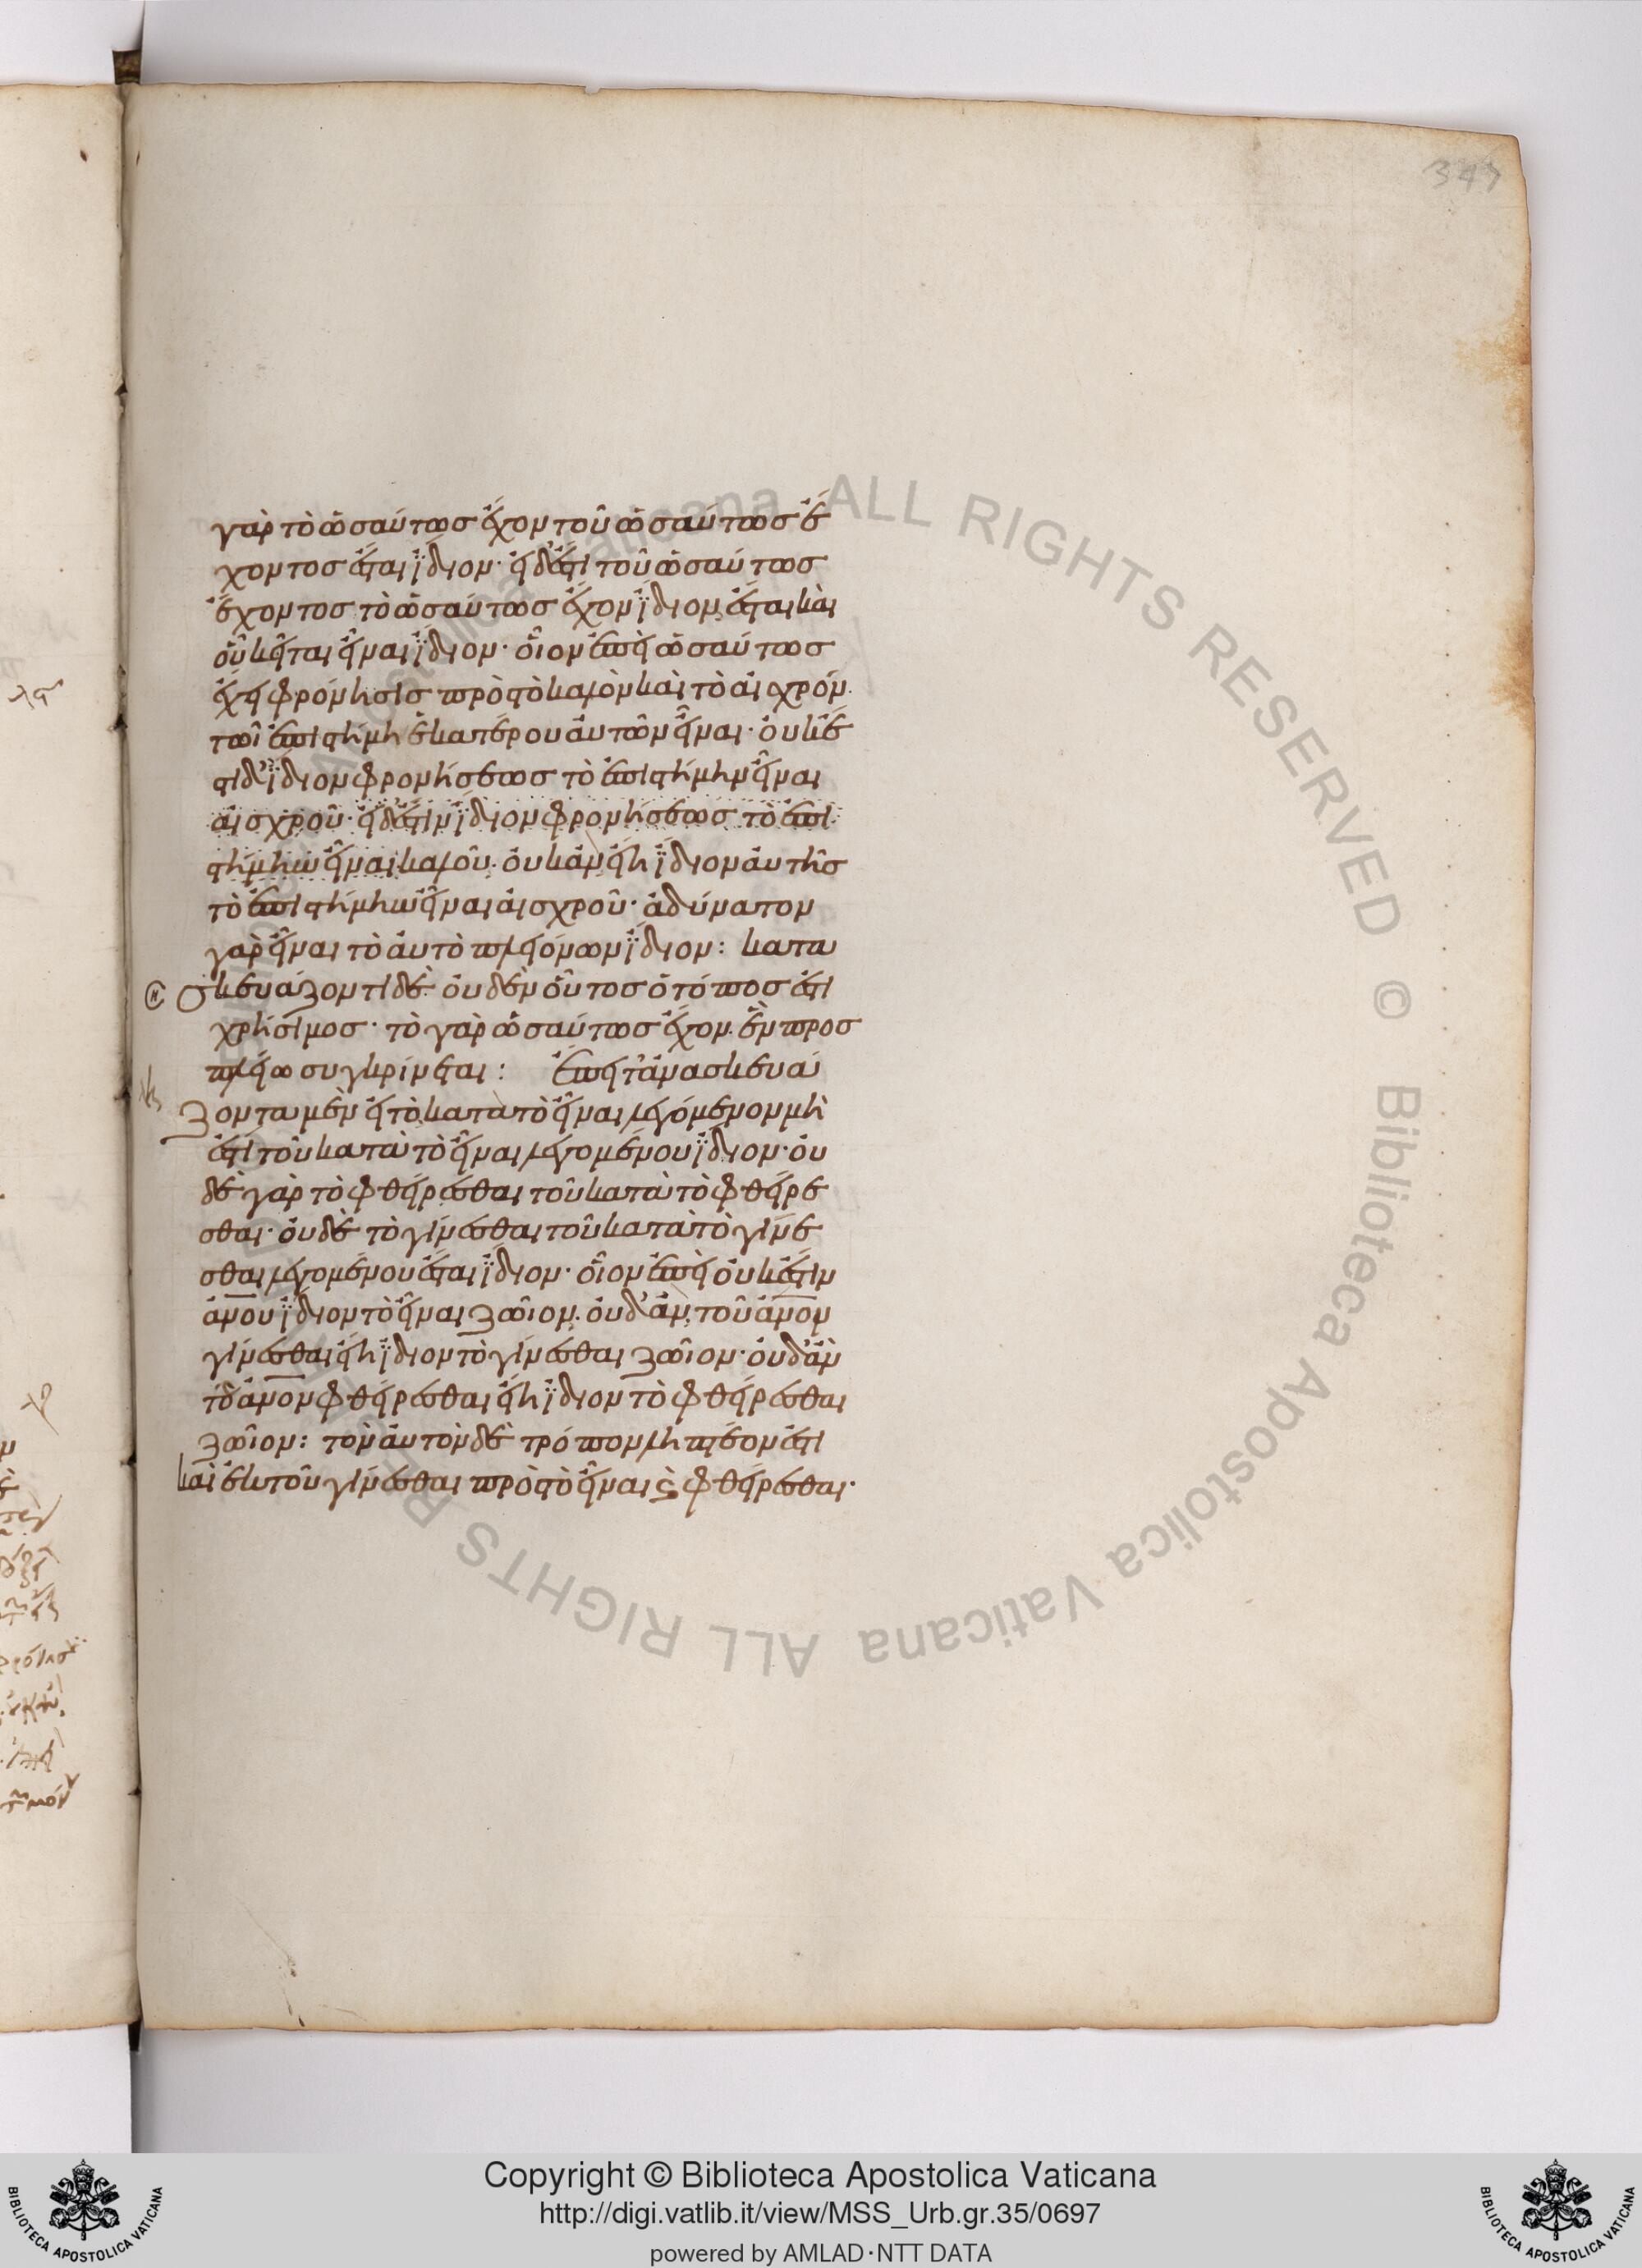 347
γὰρ τὸ ὡσαύτωσ ἔχον τοῦ ὡσαύτωσ ἔ
χοντοσ ἔσται ἴδιον· εἰ δ' ἔστι τοῦ ὡσαύτωσ
ἔχοντοσ τὸ ὡσαύτωσ ἔχον ἴδιον, ἔσται καὶ
οὗ κεῖται εἶναι ἴδιον· οἷον ἐπεὶ ὡσαύτωσ
ἔχει φρόνησισ πρὸσ τὸ καλὸν καὶ τὸ αἰσχρόν.
τῶι ἐπιστήμη ἑκατέρου αὐτῶν εἶναι· οὐκ ἔ
στι δ' ἴδιον φρονήσεωσ τὸ ἐπιστήμην εἶναι
αἰσχροῦ· εἰ δ' ἔστιν ἴδιον φρονήσεωσ τὸ ἐπι
στήμην εἶναι καλοῦ. οὐκ ἂν εἴη ἴδιον αὐτῆσ
τὸ ἐπιστήμην εἶναι αἰσχροῦ· ἀδύνατον
γὰρ εἶναι τὸ αὐτὸ πλειόνων ἴδιον: κατα
σκευάζοντι δὲ οὐδὲν οὗτοσ ὁ τόποσ ἐστι
χρήσιμοσ· τὸ γὰρ ὡσαύτωσ ἔχον. ἓν προσ
πλείω συγκρίνεται: Ἔπειτ' ἀνασκευά
ζοντα μὲν εἰ τὸ κατὰ τὸ εἶναι λεγόμενον μὴ
ἔστι τοῦ κατὰ τὸ εἶναι λεγομένου ἴδιον· οὐ
δὲ γὰρ τὸ φθείρεσθαι τοῦ κατὰ τὸ φθείρε
σθαι· οὐδὲ τὸ γίνεσθαι τοῦ κατὰ τὸ γίνε
σθαι λεγομένου ἔσται ἴδιον· οἷον ἐπεὶ οὐκ ἔστιν
ἀνου ἴδιον τὸ εἶναι ζῶιον. οὐδ' ἂν, τοῦ ἀνον
γίνεσθαι εἴη ἴδιον τὸ γίνεσθαι ζῶιον· οὐδ' ἂν
τοῦ ἀνον φθείρεσθαι εἴη ἴδιον τὸ φθείρεσθαι
ζῶιον: τὸν αὐτὸν δὲ τρόπον ληπτέον ἐστι
καὶ ἐκ τοῦ γίνεσθαι πρὸσ τὸ εἶναι ϛ φθείρεσθαι·
ALL RIGHTS RESERVED © Biblioteca Apostolica Vaticana ALL RIGHTS RESERVED © Biblioteca Apostolica Vaticana
BIBLIOTECA APOSTOLICA VATICANA
Copyright © Biblioteca Apostolica Vaticana
http://digi.vatlib.it/view/MSS_Urb.gr.35/0697
powered by AMLAD·NTT DATA
BIBLIOTECA APOSTOLICA VATICANA